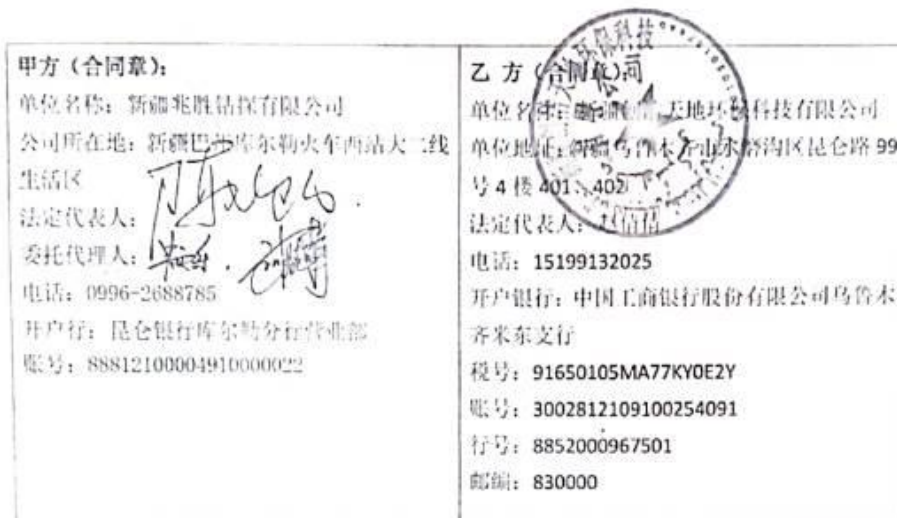 甲方（合同章）：
单位名称：新疆兆胜钻探有限公司
公司所在地：新疆巴州库尔勒火车西站大二线
生活区
法定代表人：
委托代理人：
电话：0996-2688785
开户行：昆仑银行库尔勒分行营业部
账号：88812100004910000022
环保科技
公司
乙 方（合同章）
单位名称：天地环保科技有限公司
单位地址：新疆乌鲁木齐市水磨沟区昆仑路 99
号 4 楼 401、402
法定代表人：倩倩
电话：15199132025
开户银行：中国工商银行股份有限公司乌鲁木
齐米东支行
税号：91650105MA77KY0E2Y
账号：3002812109100254091
行号：8852000967501
邮编：830000